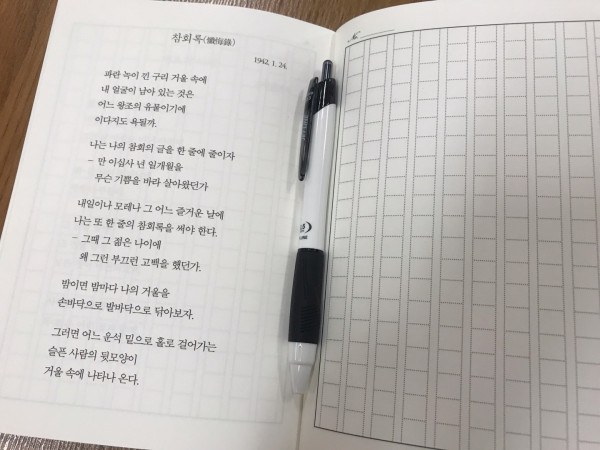 참회록(懺悔錄)
1942. 1. 24.
파란 녹이 낀 구리 거울 속에
내 얼굴이 남아 있는 것은
어느 왕조의 유물이기에
이다지도 욕될까.
나는 나의 참회의 글을 한 줄에 줄이자
- 만 이십사 년 일개월을
무슨 기쁨을 바라 살아왔던가
내일이나 모레나 그 어느 즐거운 날에
나는 또 한 줄의 참회록을 써야 한다.
- 그때 그 젊은 나이에
왜 그런 부끄런 고백을 했던가.
밤이면 밤마다 나의 거울을
손바닥으로 발바닥으로 닦아보자.
그러면 어느 운석 밑으로 홀로 걸어가는
슬픈 사람의 뒷모양이
거울 속에 나타나 온다.
No.